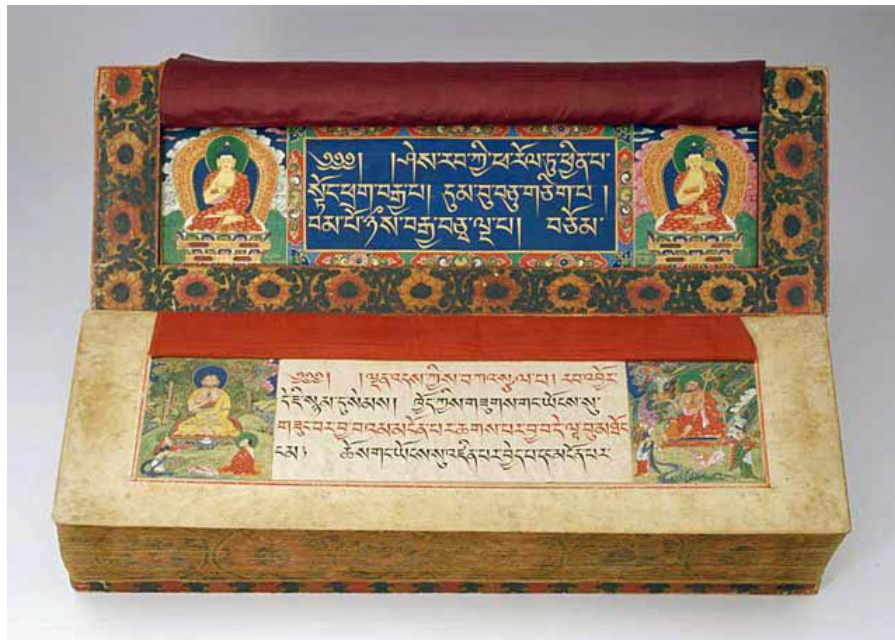 ༄༅༅། །ཤེས་རབ་ཀྱི་ཕ་རོལ་ཏུ་ཕྱིན་པ་
སྟོང་ཕྲག་བརྒྱ་པ། དུམ་བུ་བཅུ་གཅིག་པ །
བམ་པོ་ཉིས་བརྒྱ་བཅུ་ལྔ་པ། བཅོམ་
༄༅༅། །ལྡན་འདས་ཀྱིས་བཀའ་སྩལ་པ། རབ་འབྱོར་
དེ་ཇི་སྙམ་དུ་སེམས། ཁྱོད་ཀྱིས་གཟུགས་གང་ཡོངས་སུ་
གཟུང་བར་བྱ་བའམ་མངོན་པར་ཆགས་པར་བྱ་བ་དེ་ལྟ་བུ་མཐོང་
ངམ། ཆོས་གང་ཡོངས་སུ་འཛིན་པར་བྱེད་པ་དང་མངོན་པར་